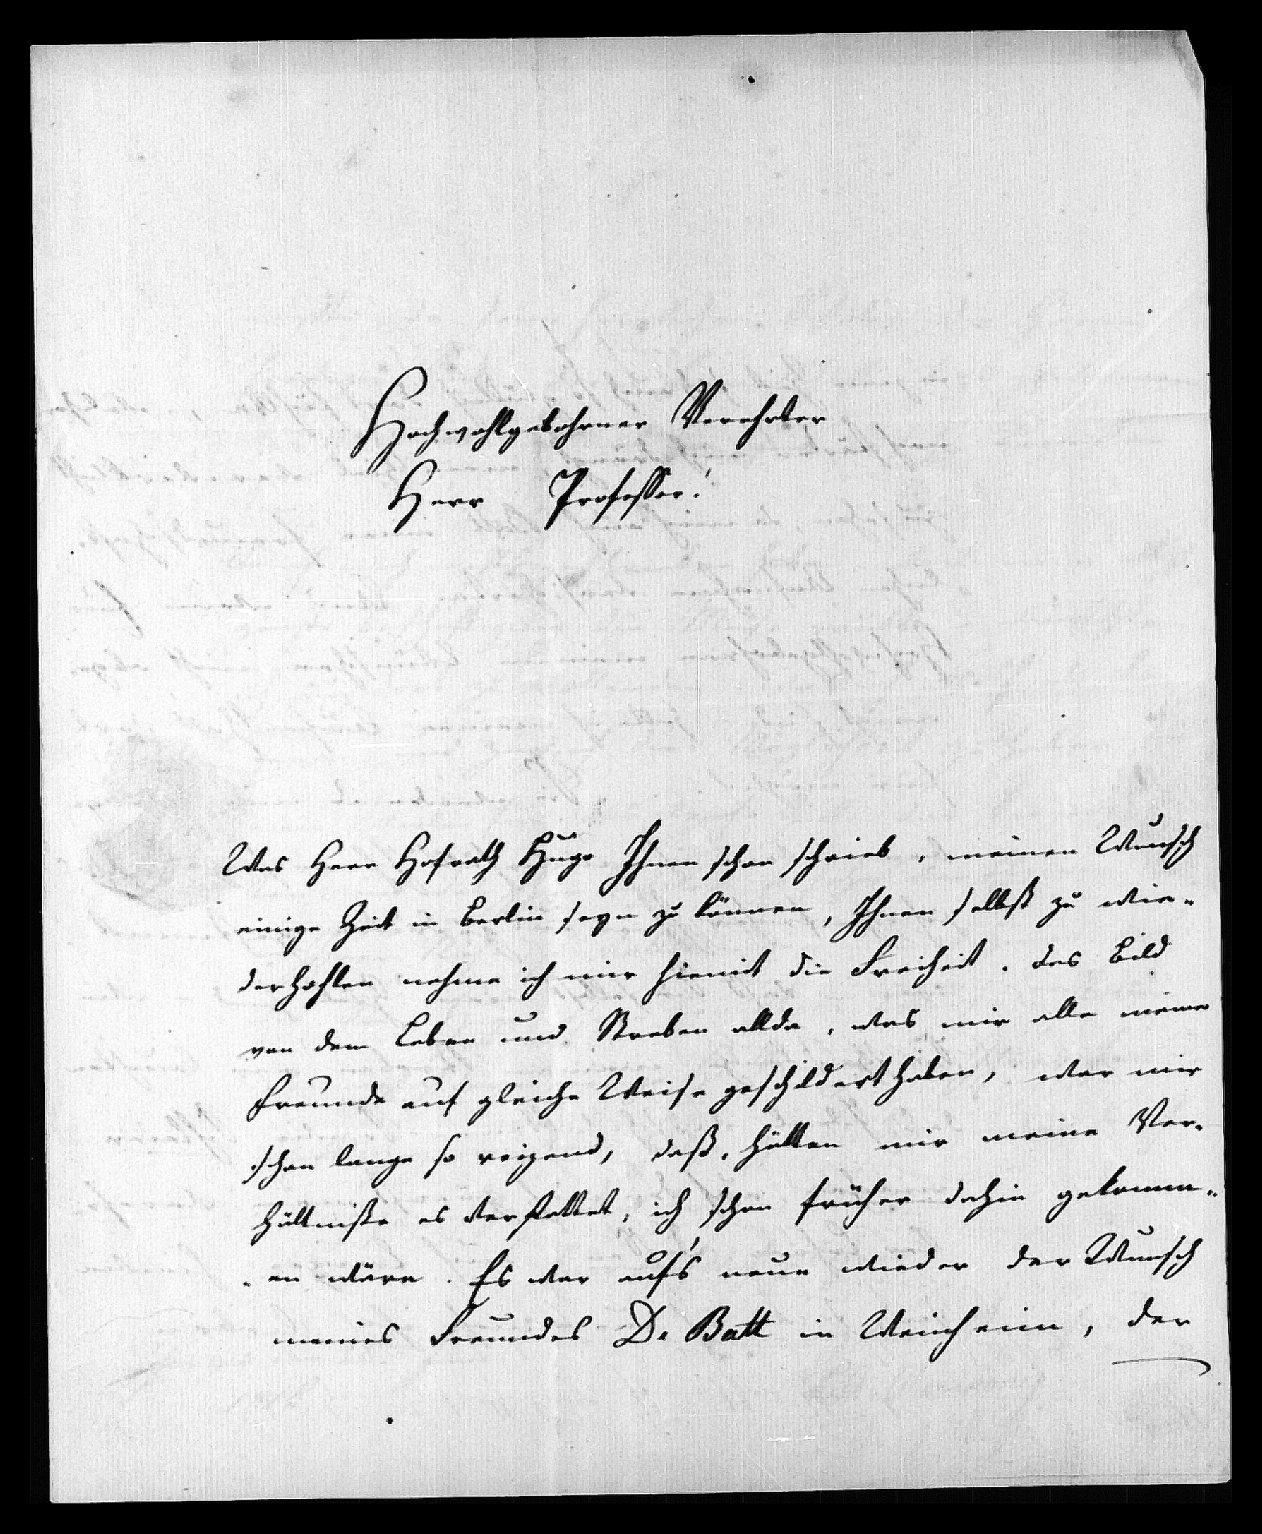 Hochwohlgebohrner Verehrter
Herr Professor!
Was Herr Hofrath Hugo Ihnen schon schrieb, meinen Wunsch
einige Zeit in Berlin seyn zu können, Ihnen selbst zu wie-
derhohlen nehme ich mir hiemit die Freiheit. Das Bild
von dem Leben und Streben allda, was mir alle meine
Freunde auf gleiche Weise geschildert haben, war mir
schon lange so reizend, daß, hätten mir meine Ver-
hältniße es verstattet, ich schon früher dahin gekomm-
en wäre. Es war auf's neue wieder der Wunsch
meines Freundes D. Batt in Weinheim, der